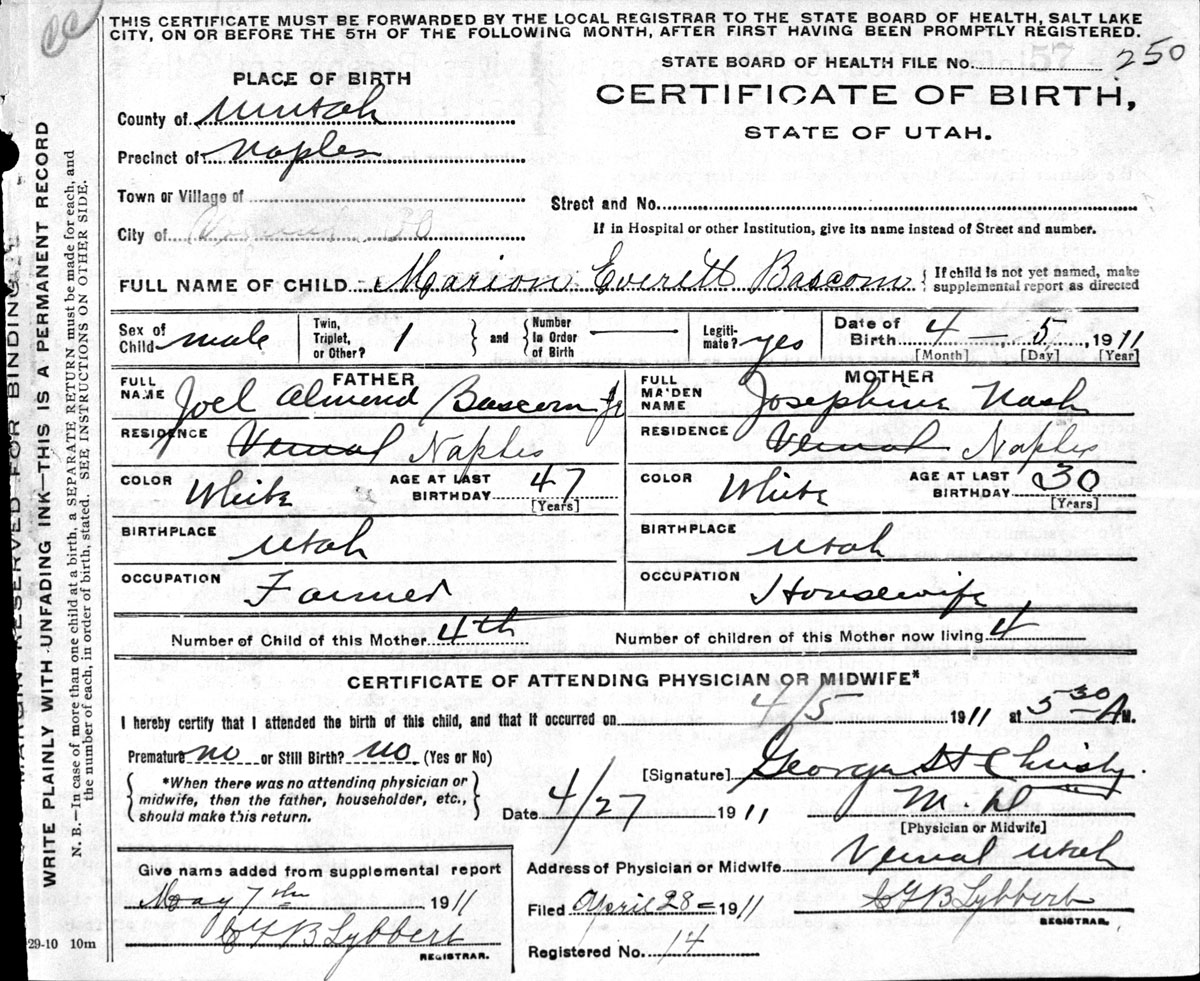 THIS CERTIFICATE MUST BE FORWARDED BY THE LOCAL REGISTRAR TO THE STATE BOARD OF HEALTH, SALT LAKE
CITY, ON OR BEFORE THE 5TH OF THE FOLLOWING MONTH, AFTER FIRST HAVING BEEN PROMPTLY REGISTERED.
STATE BOARD OF HEALTH FILE No. 250
PLACE OF BIRTH
CERTIFICATE OF BIRTH,
STATE OF UTAH.
County of Uintah
Precinct of Naples
Town or Village of
Street and No.
City of
If in Hospital or other Institution, give its name instead of Street and number.
FULL NAME OF CHILD Marion Everett Bascom { If child is not yet named, make
supplemental report as directed
Sex of Child male
Twin, Triplet, or Other? 1 } and { Number in Order of Birth
Legitimate? yes
Date of Birth 4 - 5, 1911
[Month] [Day] [Year]
FATHER
FULL NAME Joel Almond Bascom Jr
RESIDENCE Vernal Naples
COLOR White AGE AT LAST BIRTHDAY 47 [Years]
BIRTHPLACE Utah
OCCUPATION Farmer
MOTHER
FULL MAIDEN NAME Josephine Nash
RESIDENCE Vernal Naples
COLOR White AGE AT LAST BIRTHDAY 30 [Years]
BIRTHPLACE Utah
OCCUPATION Housewife
Number of Child of this Mother 4th Number of children of this Mother now living 4
CERTIFICATE OF ATTENDING PHYSICIAN OR MIDWIFE*
I hereby certify that I attended the birth of this child, and that it occurred on 4/5 1911 at 5 30 A M.
Premature no or Still Birth? no (Yes or No)
{ *When there was no attending physician or
midwife, then the father, householder, etc.,
should make this return. }
[Signature] George H Christy
Date 4/27 1911 M. D
[Physician or Midwife]
Address of Physician or Midwife Vernal Utah
Filed April 28 1911 Lybbert
REGISTRAR.
Registered No. 14
Give name added from supplemental report
May 7th 1911
Lybbert
REGISTRAR.
29-10 10m
MARGIN RESERVED FOR BINDING
WRITE PLAINLY WITH UNFADING INK—THIS IS A PERMANENT RECORD
N. B.—In case of more than one child at a birth, a SEPARATE RETURN must be made for each, and
the number of each, in order of birth, stated. SEE INSTRUCTIONS ON OTHER SIDE.